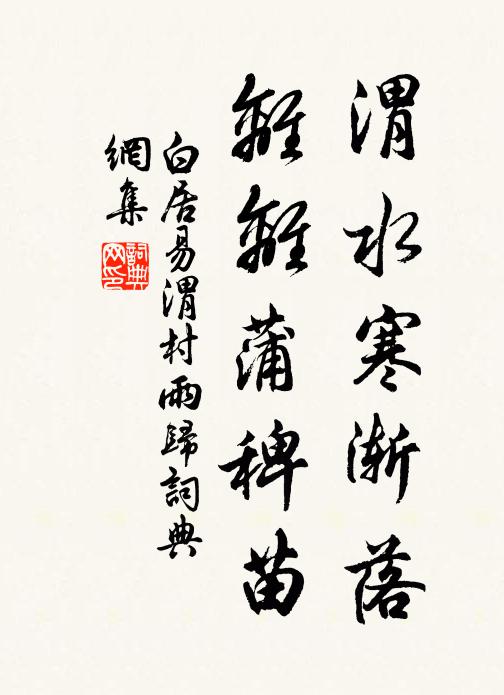 渭水寒渐落
離離蒲稗苗
白居易渭村雨歸詞典
網集
詞典
网印